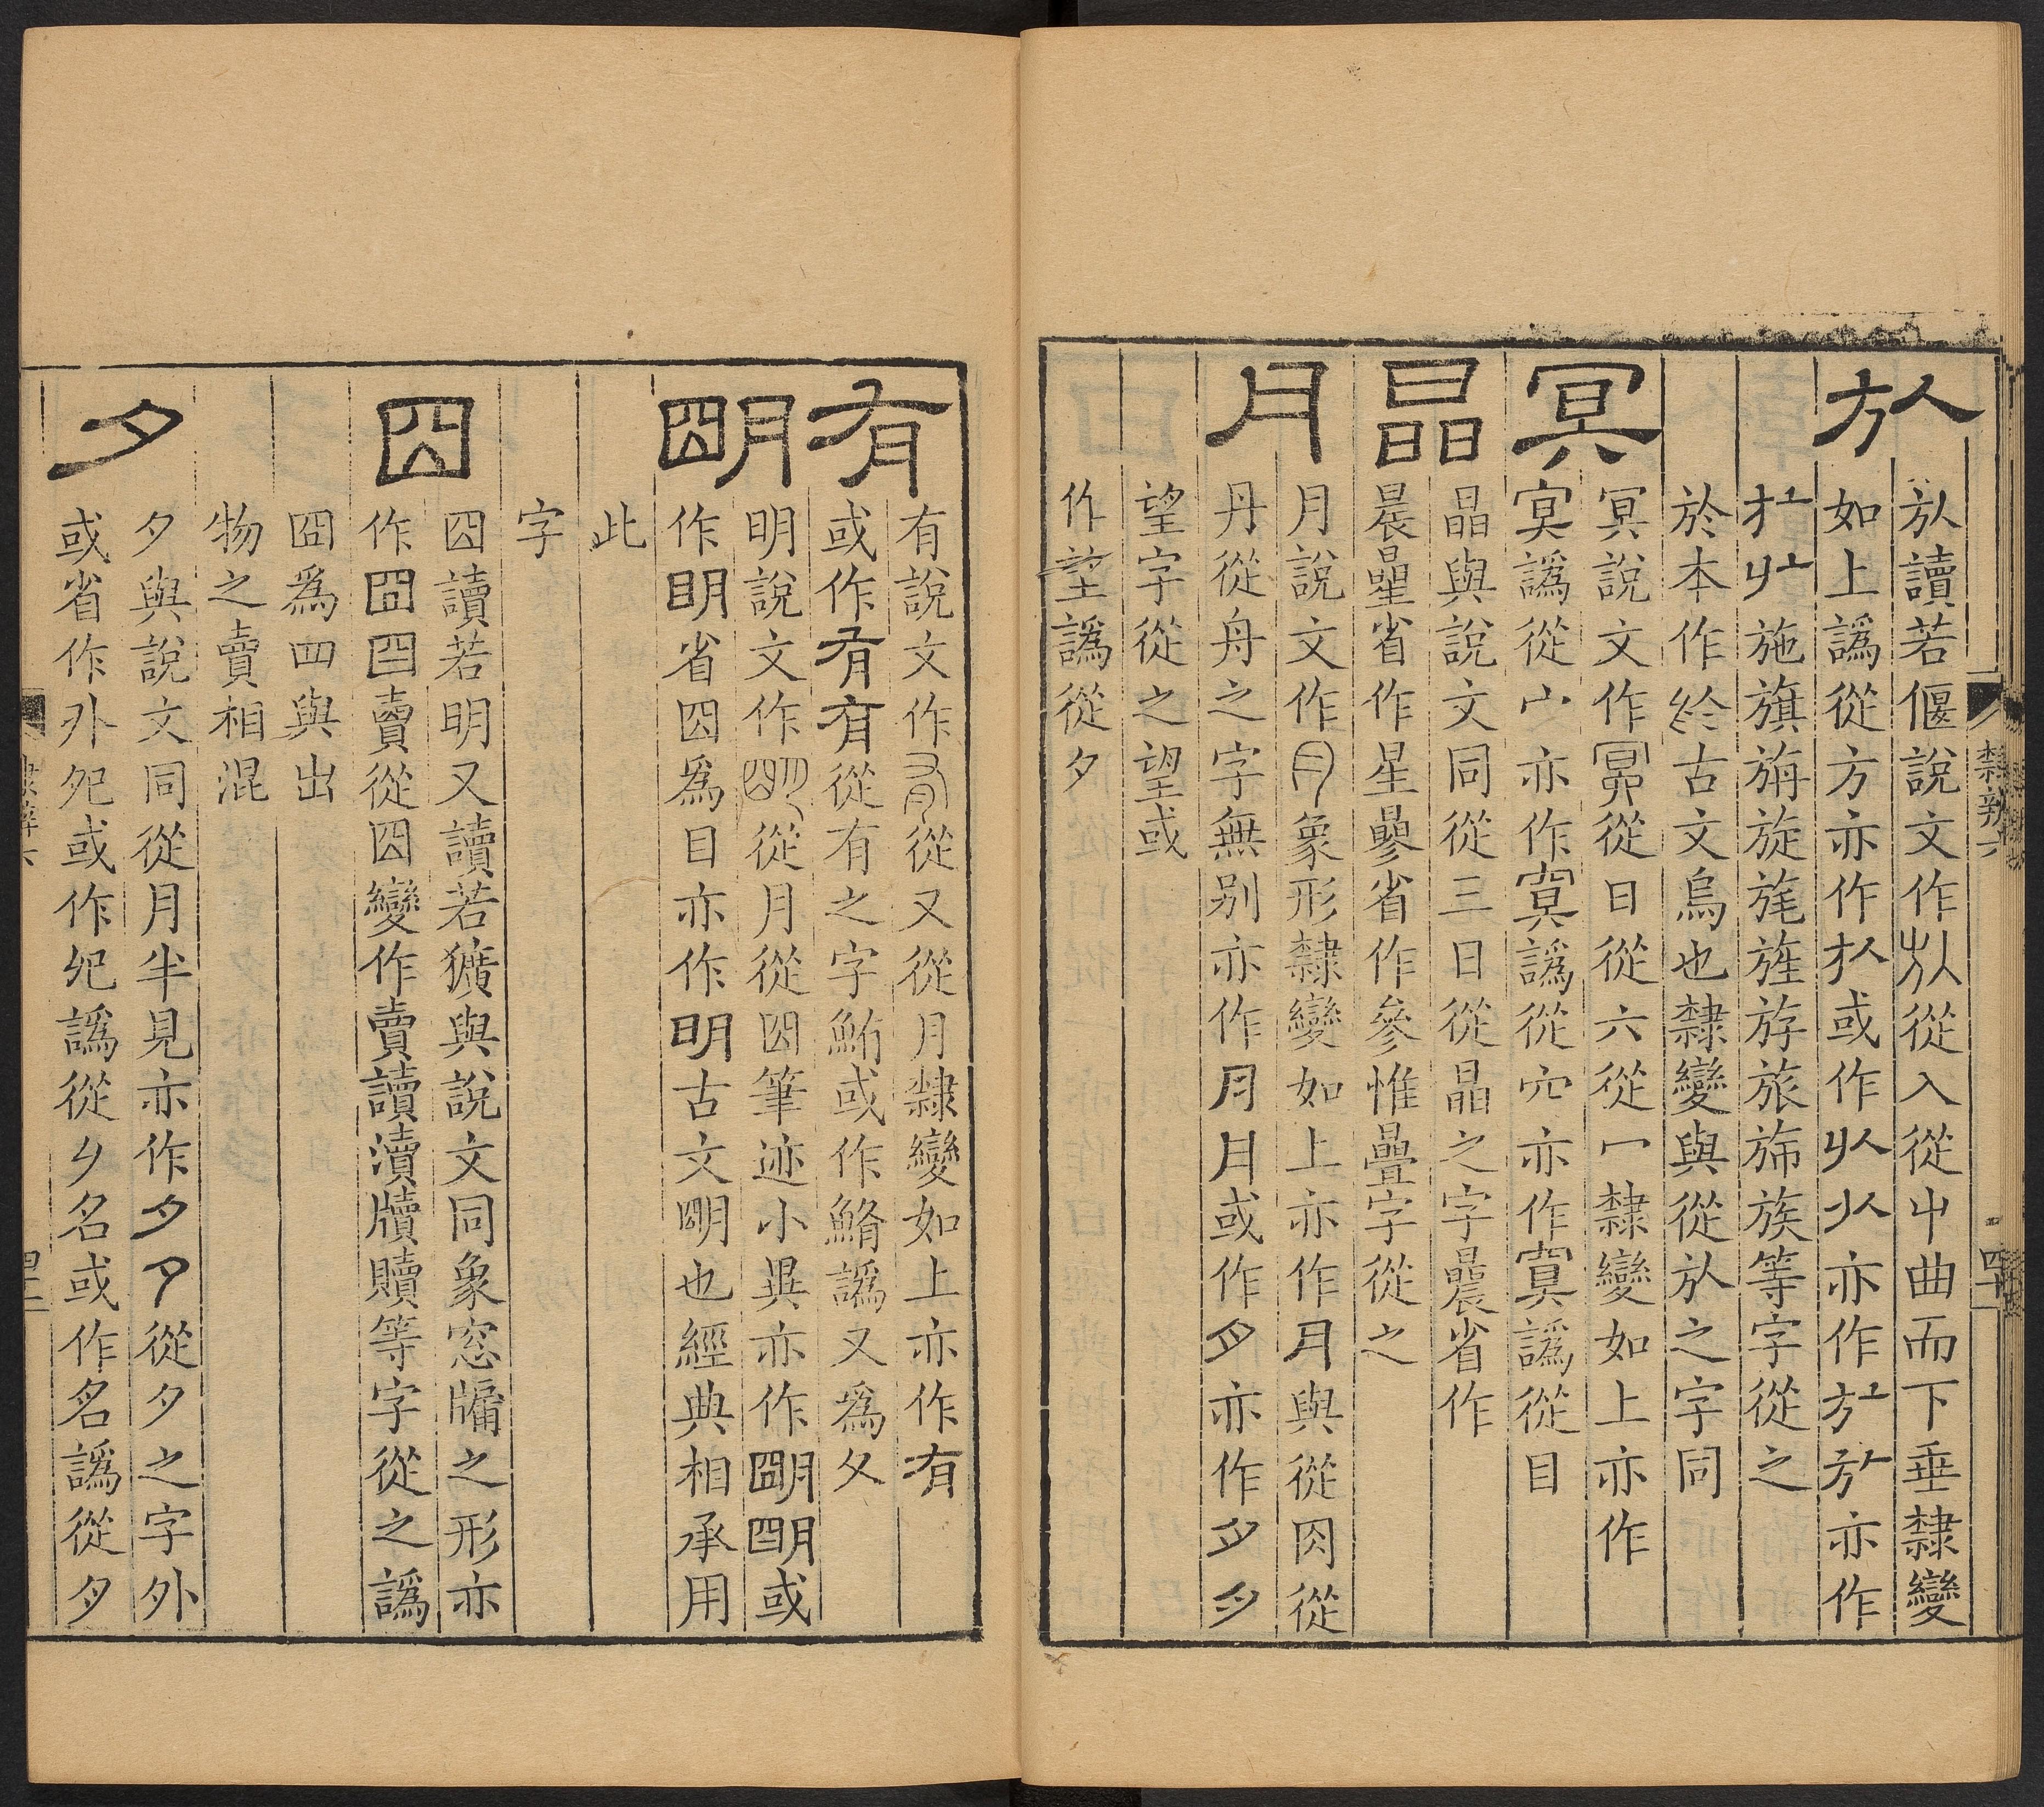 㫃
㫃讀若偃說文作㫃從入從屮曲而下垂隸變
如上譌從方亦作 或作 亦作 亦作
施旗旃旋旄旌游旅旆族等字從之
於本作 古文烏也隸變與從㫃之字同
冥
冥說文作 從日從六從冖隸變如上亦作
㝠譌從宀亦作 譌從穴亦作 譌從目
晶
晶與說文同從三日從晶之字曟省作
晨曐省作星曑省作參惟疊字從之
月
月說文作 象形隸變如上亦作月與從肉從
丹從舟之字無别亦作 或作 亦作
望字從之望或
作 譌從夕
隸辨六
四十
有
有說文作 從又從月隸變如上亦作有
或作有有從有之字鮪或作 譌又爲夂
朙
明說文作 從月從囧筆迹小異亦作 或
作眀省囧爲目亦作明古文朙也經典相承用
此
字
囧
囧讀若明又讀若獷與說文同象窓牖之形亦
作 𧶠從囧變作賣讀瀆牘贖等字從之譌
囧爲四與出
物之賣相混
夕
夕與說文同從月半見亦作 從夕之字外
或省作外夗或作 譌從 名或作名譌從